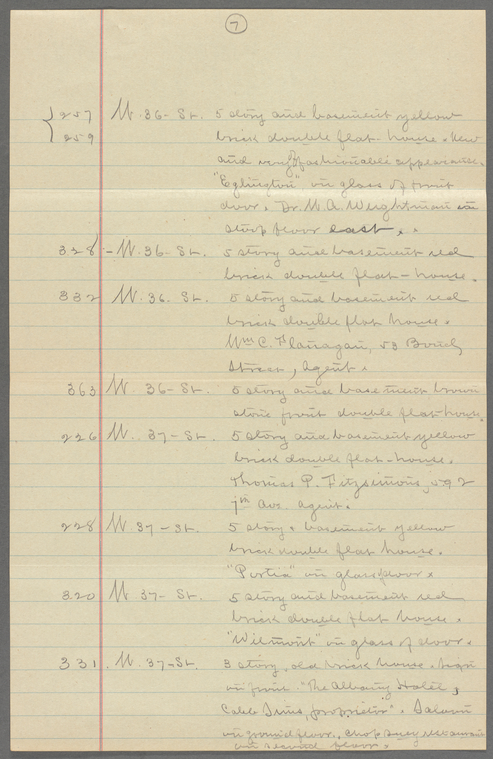 7
257 W. 36- St. 5 story and basement yellow
259 brick double flat-house. New
and very fashionable appearance.
"Eglington" in glass of front
door. Dr. W. A. Weightman in
stoop floor east.
328 - W. 36- St. 5 story and basement red
brick double flat-house.
332 W. 36. St. 5 story and basement red
brick double flat house.
Wm C. Flanagan, 53 Bond
Street, agent.
363 W. 36- St. 5 story and basement brown
stone front double flat-house.
226 W. 37- St. 5 story and basement yellow
brick double flat-house.
Thomas P. Fitzsimons, 592
7th Ave. agent.
228 W. 37- St. 5 story & basement yellow
brick double flat house.
"Portia" in glass door.
320 W. 37- St. 5 story and basement red
brick double flat house.
"Wilmont" in glass of door.
331. W. 37- St. 3 story, old brick house. Sign
in front. "The Albany Hotel,
Caleb Sims, proprietor". Saloon
in ground floor, chop suey restaurant
in second floor.